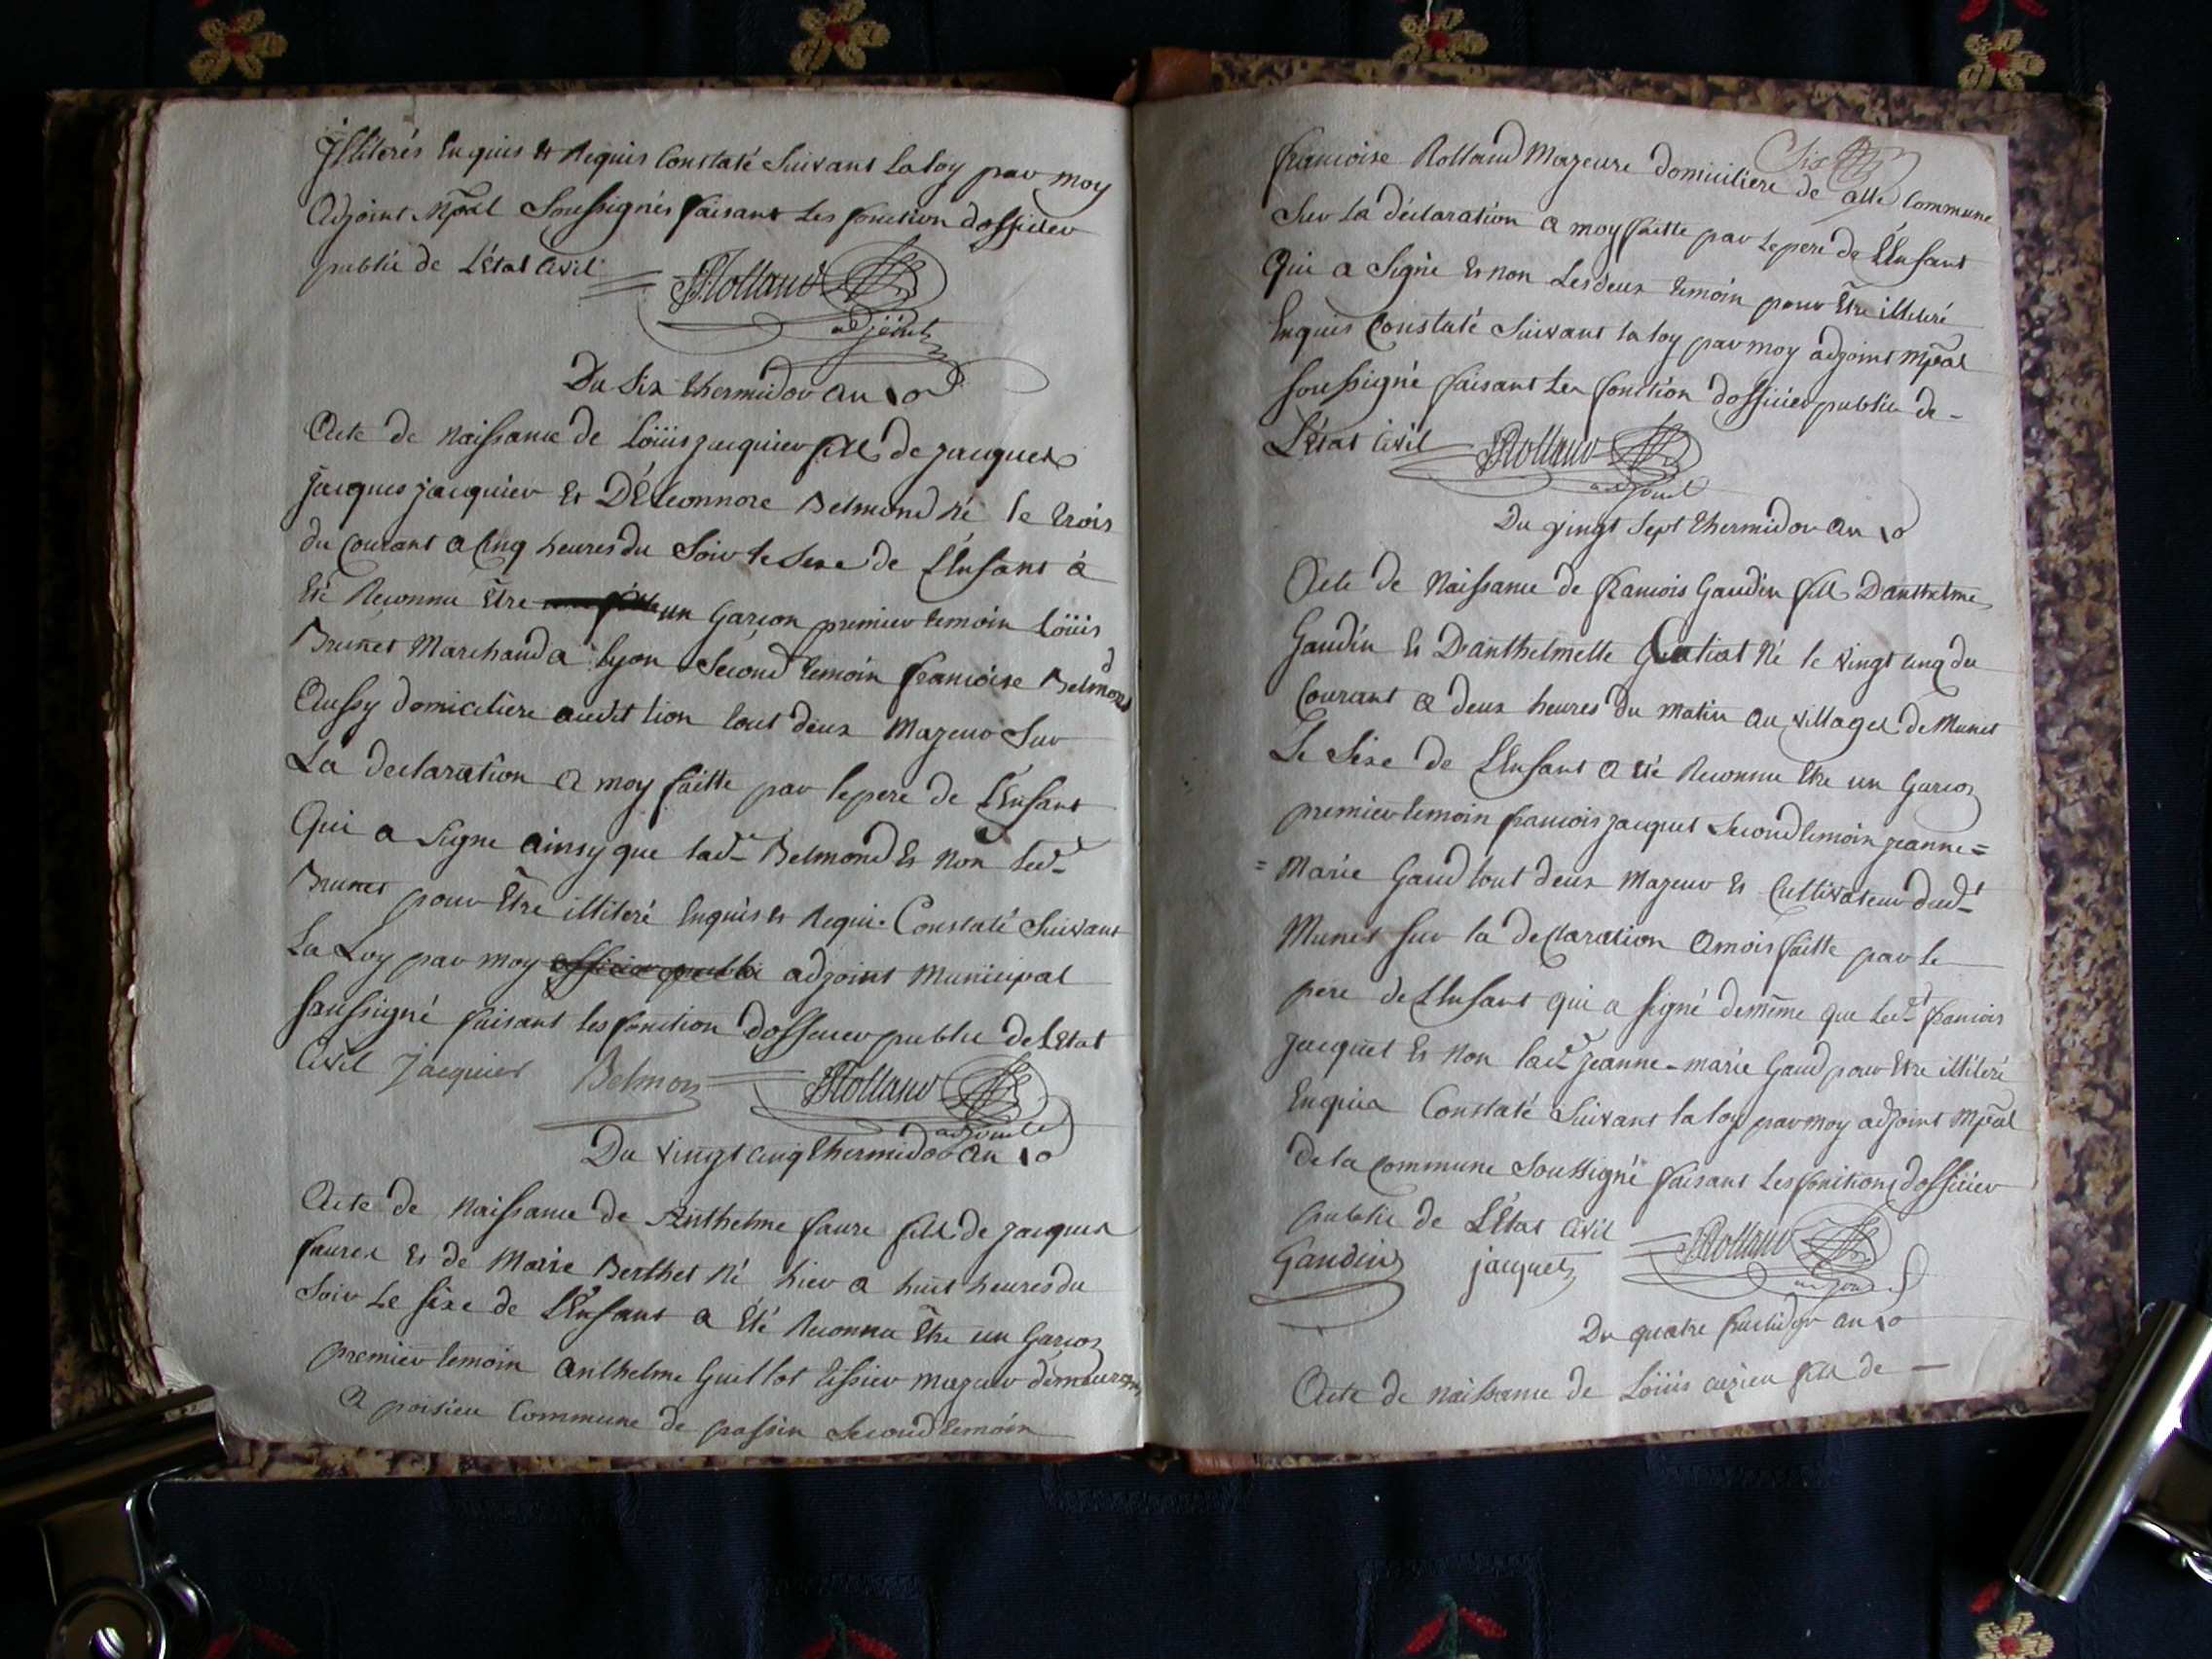 Illiterés Enquis et Requis Constaté Suivant La loy par moy
Adjoint Mpal Soussignés faisant Les fonction dofficier
public de L'Etat Civil Rolland
adjoint
Du Six thermidor an 10
Acte de Naissance de Loüis jacquier fils de jacques
jacques jacquier et D'Eleonnore Belmond né le trois
du Courant a Cinq heures du Soir le Sexe de L'Enfant à
été Reconnu Etre un Garçon premier temoin Loüis
Brunet Marchand a lyon Second temoin francoise Belmond
Aussy domicilière audit lion tout deux Majeur Sur
La declaration a moy faitte par le pere de L'Enfant
Qui a Signe ainsy que lad. Belmond et Non led.
Brunet pour Etre illiteré Enquis et Requi. Constaté Suivant
La Loy par moy officier public adjoint Municipal
Soussigné faisant les fonction dofficier public de L'Etat
Civil Jacquier Belmond Rolland
adjoint
Du Vingt cinq thermidor an 10
Acte de Naissance de Anthelme faure fils de jacques
faure et de Marie Berthet Né hier a huit heures du
Soir Le sexe de L'Enfant a Eté Reconnu Etre un Garcon
premier temoin Anthelme Guillot tissier majeur demeurant
A poisieu Commune de passin Second temoin
Six
francoise Rolland Majeure domiciliere de Commune
Sur La déclaration a moy faitte par Le pere de L'Enfant
Qui a Signé et non Les deux temoin pour Etre illiteré
Enquis Constaté Suivant la loy par moy adjoint Mpal
soussigné faisant Les fonction dofficier public de-
L'état Civil Rolland
adjoint
Du vingt Sept thermidor an 10
Acte de Naissance de francois Gaudin fils D'anthelme
Gaudin et D'anthelmette Né le Vingt cinq du
Courant a deux heures du matin au village de Munet
Le Sexe de L'Enfant a été Reconnu Etre un Garcon
premier temoin francois jacquet Second temoin jeanne=
=Marie Gaud tout deux Majeur et Cultivateur dud.t
Munet sur la declaration a mois faitte par le
pere de L'Enfant qui a signé de même que led.t francois
jacquet et Non lad.te jeanne-marie Gaud pour Etre illiteré
Enquis Constaté Suivant la loy par moy adjoint Mpal
de la Commune Soussigné faisant Les fonctions dofficier
public de L'Etat Civil Rolland
Gaudin jacquet adjoint
Du quatre fructidor an 10
Acte de naissance de Loüis fils de -